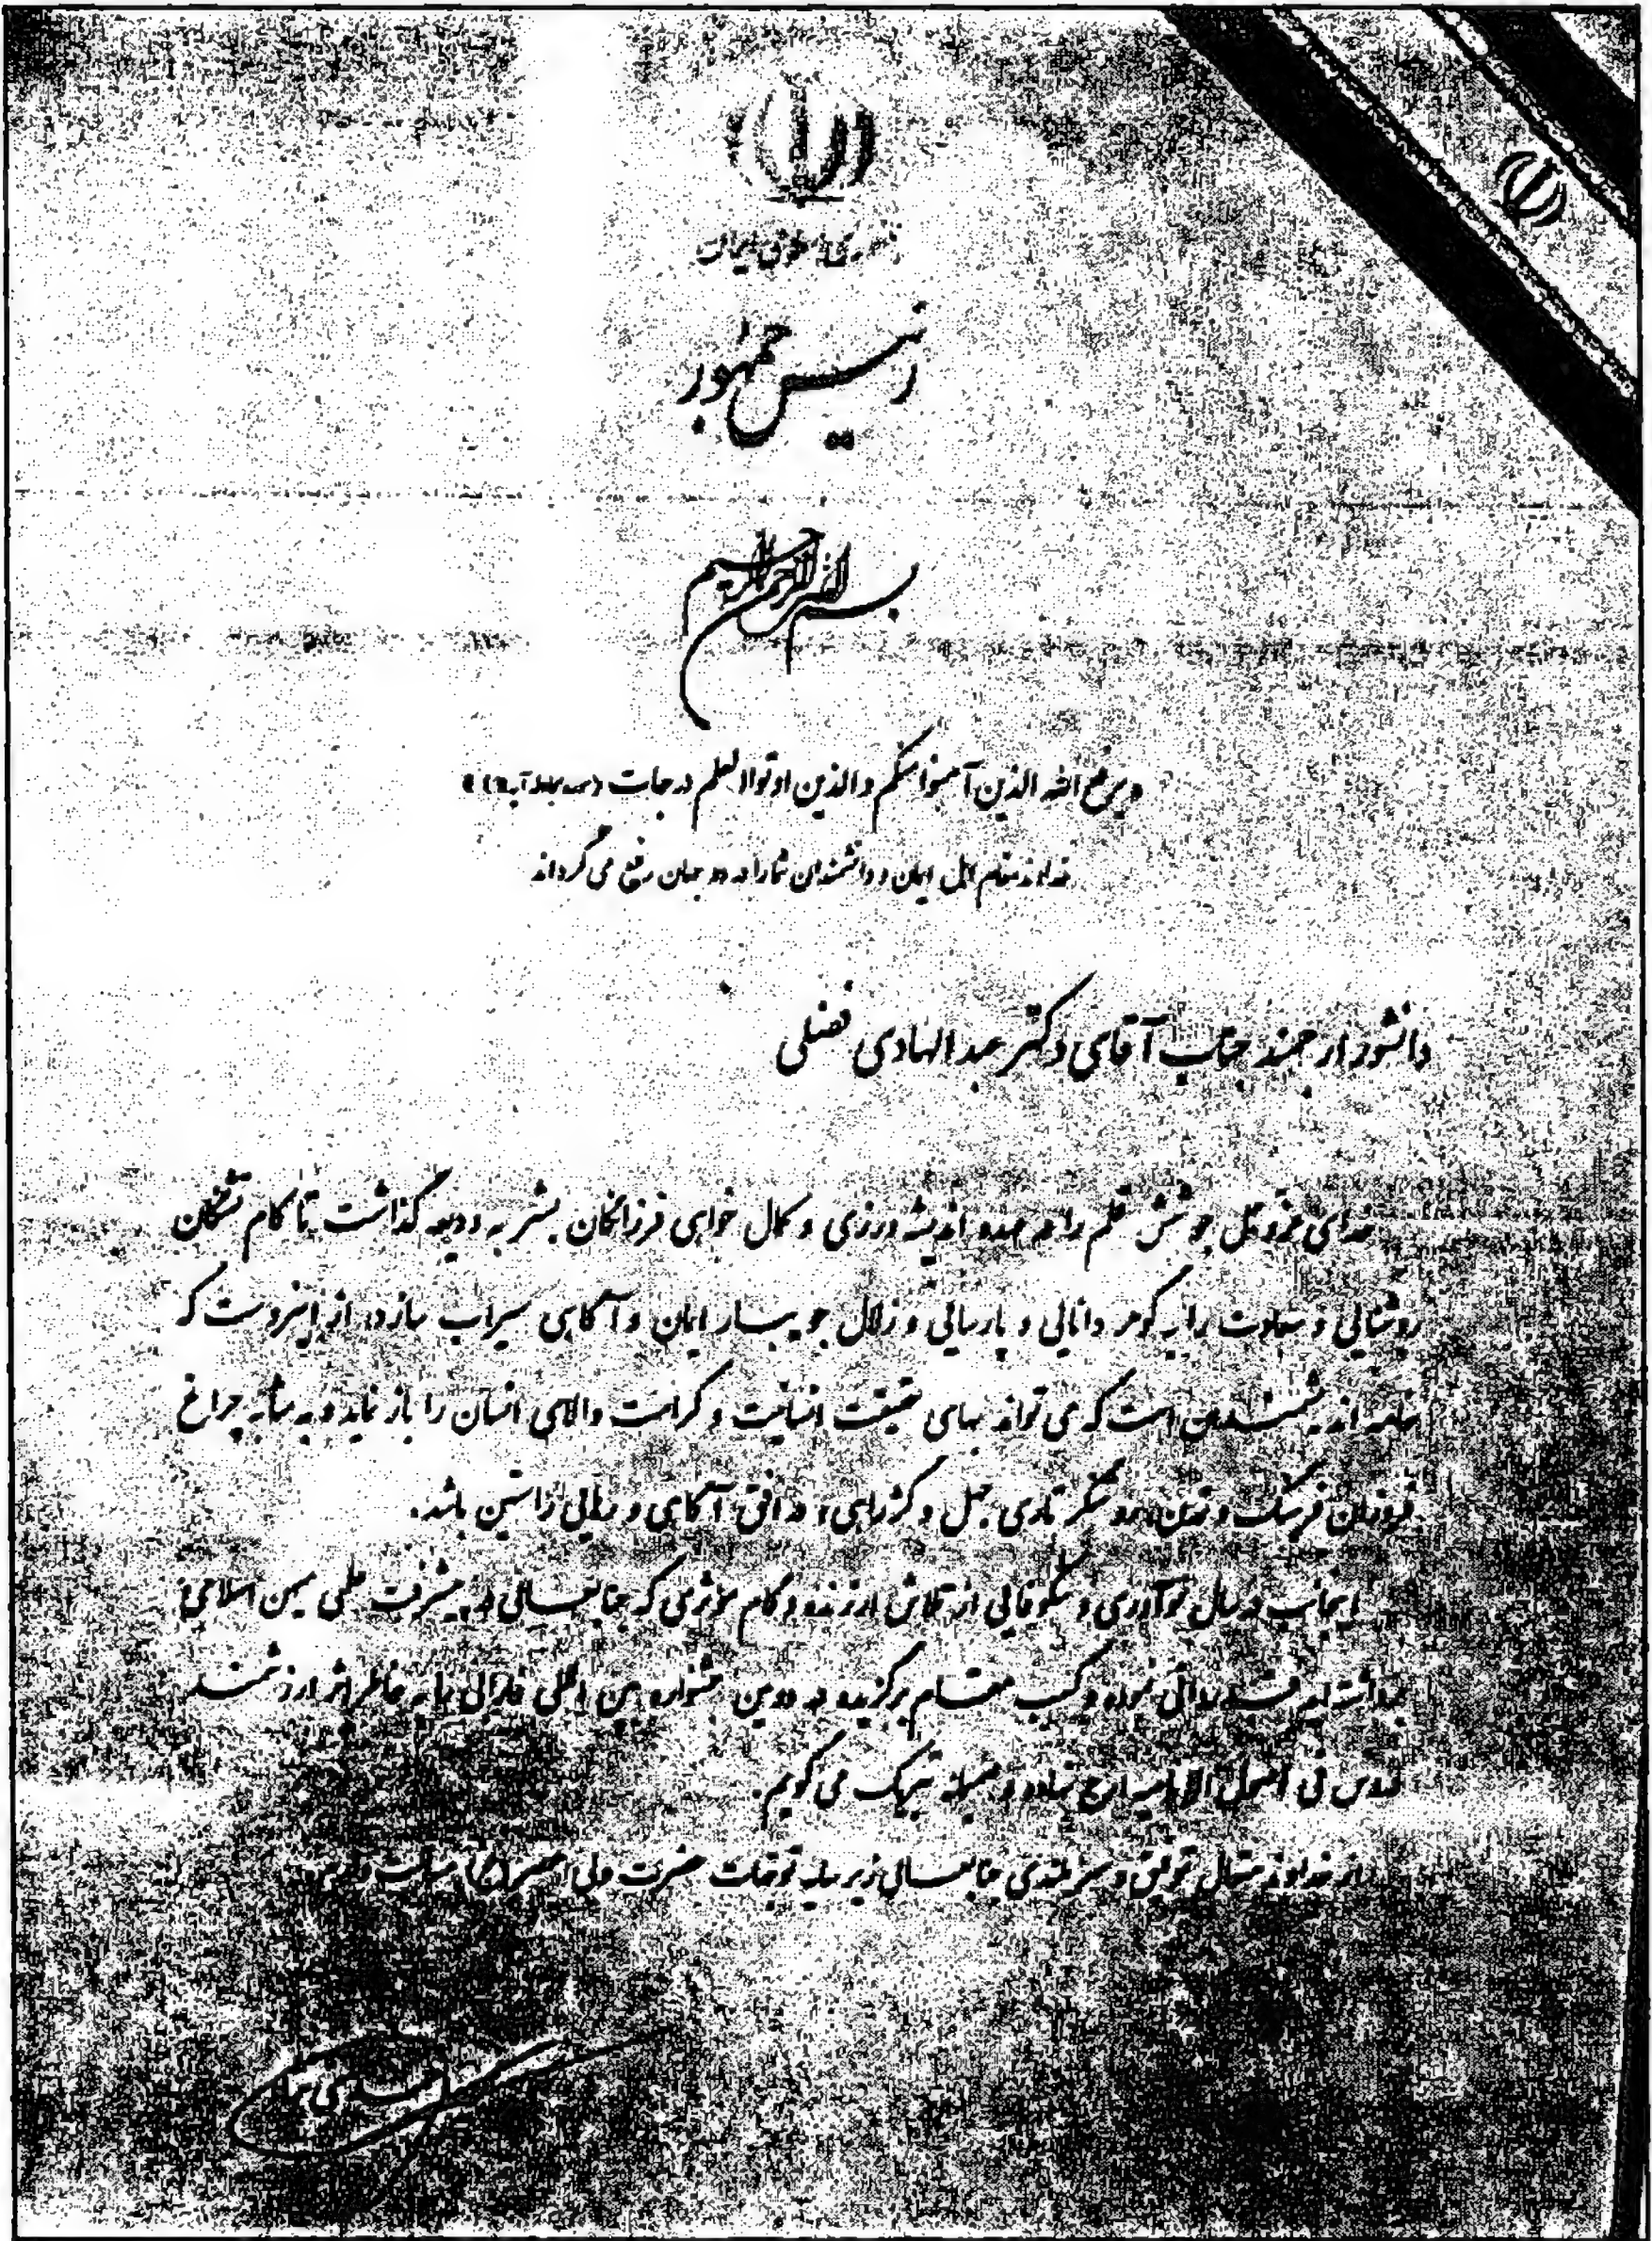 جمهوری اسلامی ایران
رئیس جمهور
بسم الله الرحمن الرحیم
«یرفع الله الذین آمنوا منکم والذین اوتوا العلم درجات»
خداوند مقام اهل ایمان و دانشمندان شما را در دو جهان رفیع می گرداند
دانشور ارجمند جناب آقای دکتر عبدالهادی فضلی
خدای عزوجل جوشش قلم را در عهده اندیشه ورزی و کمال خواهی فرزانگان بشر به ودیعه گذاشت تا کام تشنگان
روشنائی و سعادت را به گوهر دانائی و پارسائی و زلال جویبار ایمان و آگاهی سیراب سازد، از اینروست که
اندیشمندان است که می تواند بهای حقیقت انسانیت و کرامت والای انسان را باز نماید و به مثابه چراغ
فروزان فرهنگ و تمدن، تاری جهل و کژراهی، در افق آگاهی و راستین باشد.
اینجانب در سال نوآوری و شکوفائی از تلاش ارزنده و گام مؤثری که جنابعالی در پیشرفت علمی میهن اسلامی
برداشته اید قدردانی نموده و کسب مقام برگزیده در دومین جشنواره بین المللی فارابی را به خاطر اثر ارزشمند
دروس فی اصول الامامیه ارج نهاده و صمیمانه تبریک می گویم.
از خداوند متعال توفیق و سربلندی جنابعالی زیر سایه توجهات حضرت ولی عصر (عج) مسألت دارم.